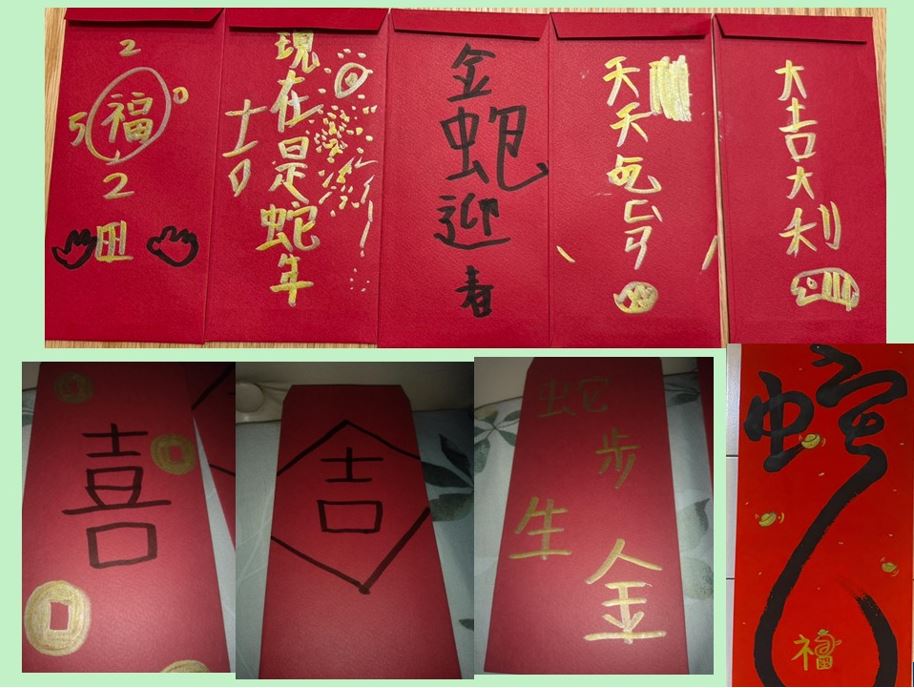 2
5福0
2
現在是蛇年
吉
金蛇迎春
天天
大吉大利
喜
吉
蛇步生金
蛇
福